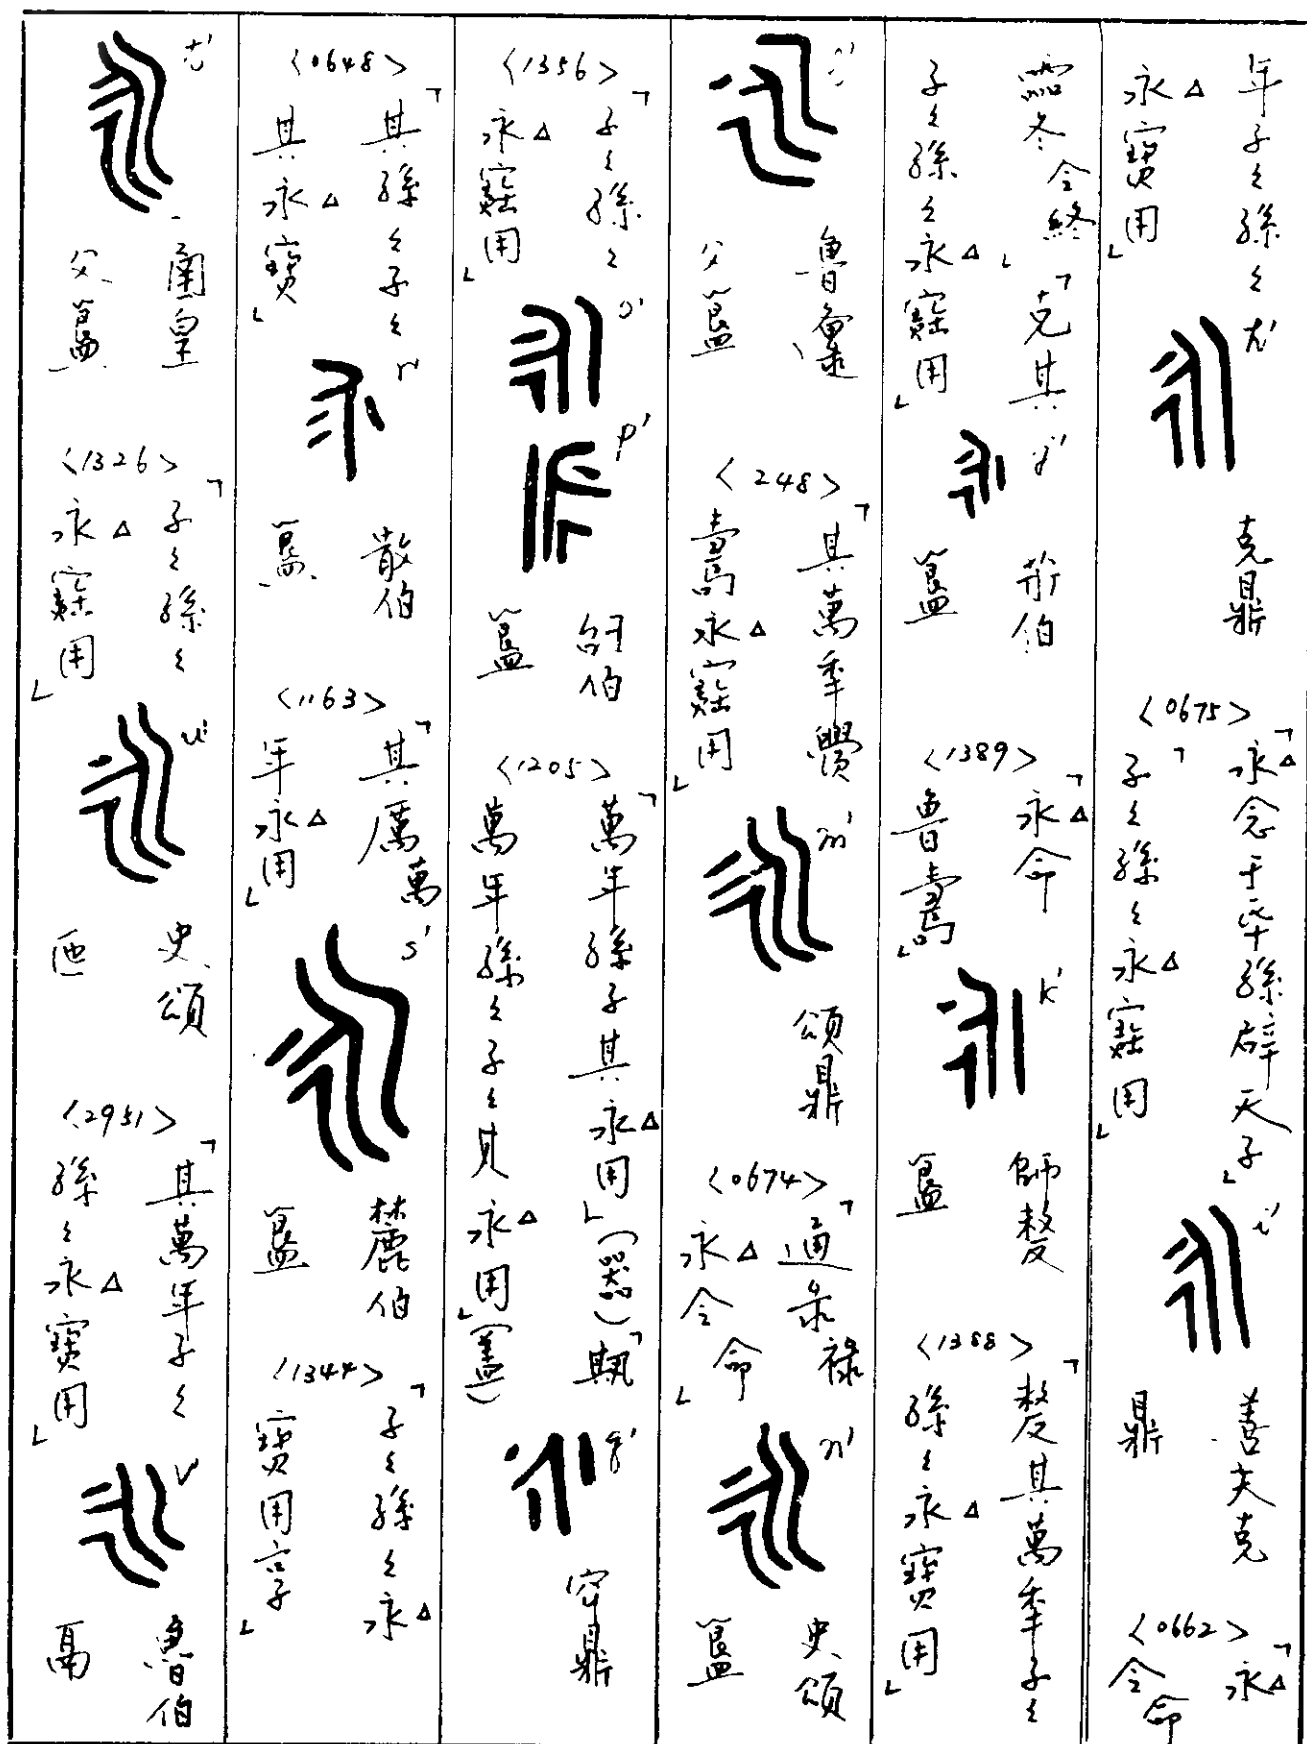 年子〻孫〻
永△寶用」
h'
克鼎
<0675>
「永△念于氒孫辟天子」
「子〻孫〻永△寶用」
i'
善夫克
鼎
<0662>
「永△
令命
霝冬令終」「克其
子〻孫〻永△寶用」
j'
伯
簋
<1389>
「永△命
魯壽」
k'
師𠭰
簋
<1388>
「𠭰其萬年子〻
孫〻永△寶用」
魯
父簋
<248>
「其萬年眉
壽永△寶用」
m'
頌鼎
<0674>
「通彔祿
永△令命」
n'
史頌
簋
<1356>
「子〻孫〻
永△寶用」
o'
p'
伯
簋
<1205>
「萬年孫子其永△用」(器)「
萬年孫〻子〻其永△用」(蓋)
q'
鼎
<0648>
「其孫〻子〻
其永△寶」
r'
散伯
簋
<1163>
「其厲萬
年永△用」
s'
伯
簋
<1344>
「子〻孫〻永△
寶用享」
t'
皇
父簋
<1326>
「子〻孫〻
永△寶用」
u'
史頌
匜
<2951>
「其萬年子〻
孫〻永△寶用」
v'
魯伯
鬲